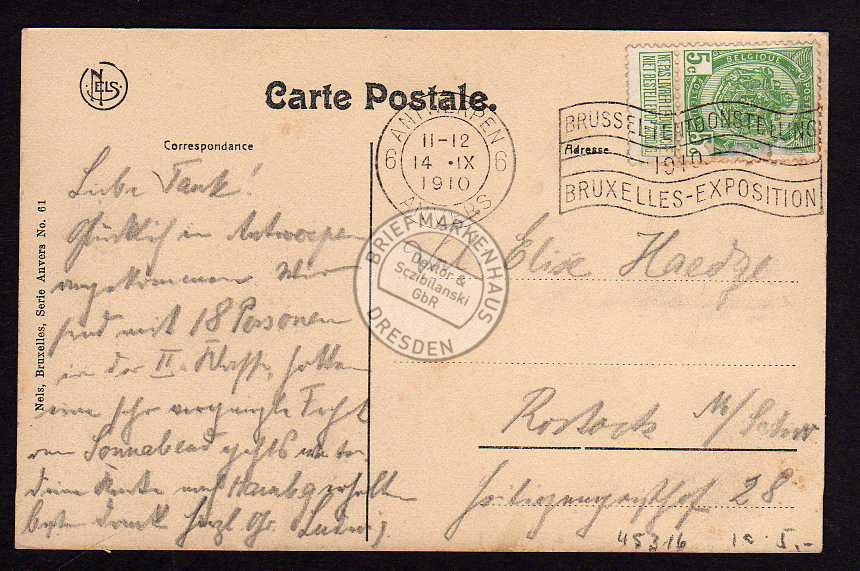 NELS
Carte Postale.
Correspondance
Adresse
ANTWERPEN
6 11-12 6
14 ·IX
1910
ANVERS
BRUSSEL TENTOONSTELLING
1910
BRUXELLES-EXPOSITION
BELGIQUE
5c 5c
NE PAS LIVRER LE DIMANCHE
NIET BESTELLEN OP ZONDAG
Nels, Bruxelles, Serie Anvers No. 61
Liebe Tante!
Glücklich in Antwerpen
angekommen. Wir
sind mit 18 Personen
in der II. Klasse, hatten
eine sehr vergnügte Fahrt
Sonnabend geht's weiter.
Deine Karte nach Hambg erhalten
besten Dank herzl Gr. Ludwig
Elise Haedge
Rostock M/Schw.
Heiligengeisthof 28
BRIEFMARKENHAUS
Dektor &
Sczibilanski
GbR
DRESDEN
45316 1a 5,-